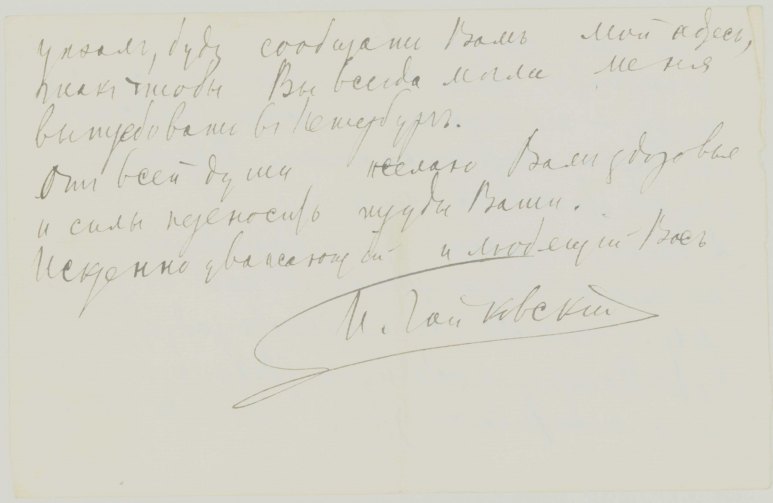 уѣхалъ, буду сообщать Вамъ мой адресъ,
такъ чтобы Вы всегда могли меня
вытребовать въ Петербургъ.
Отъ всей души желаю Вамъ здоровья
и силы переносить труды Ваши.
Искренно уважающій и любящій Васъ
П. Чайковскій